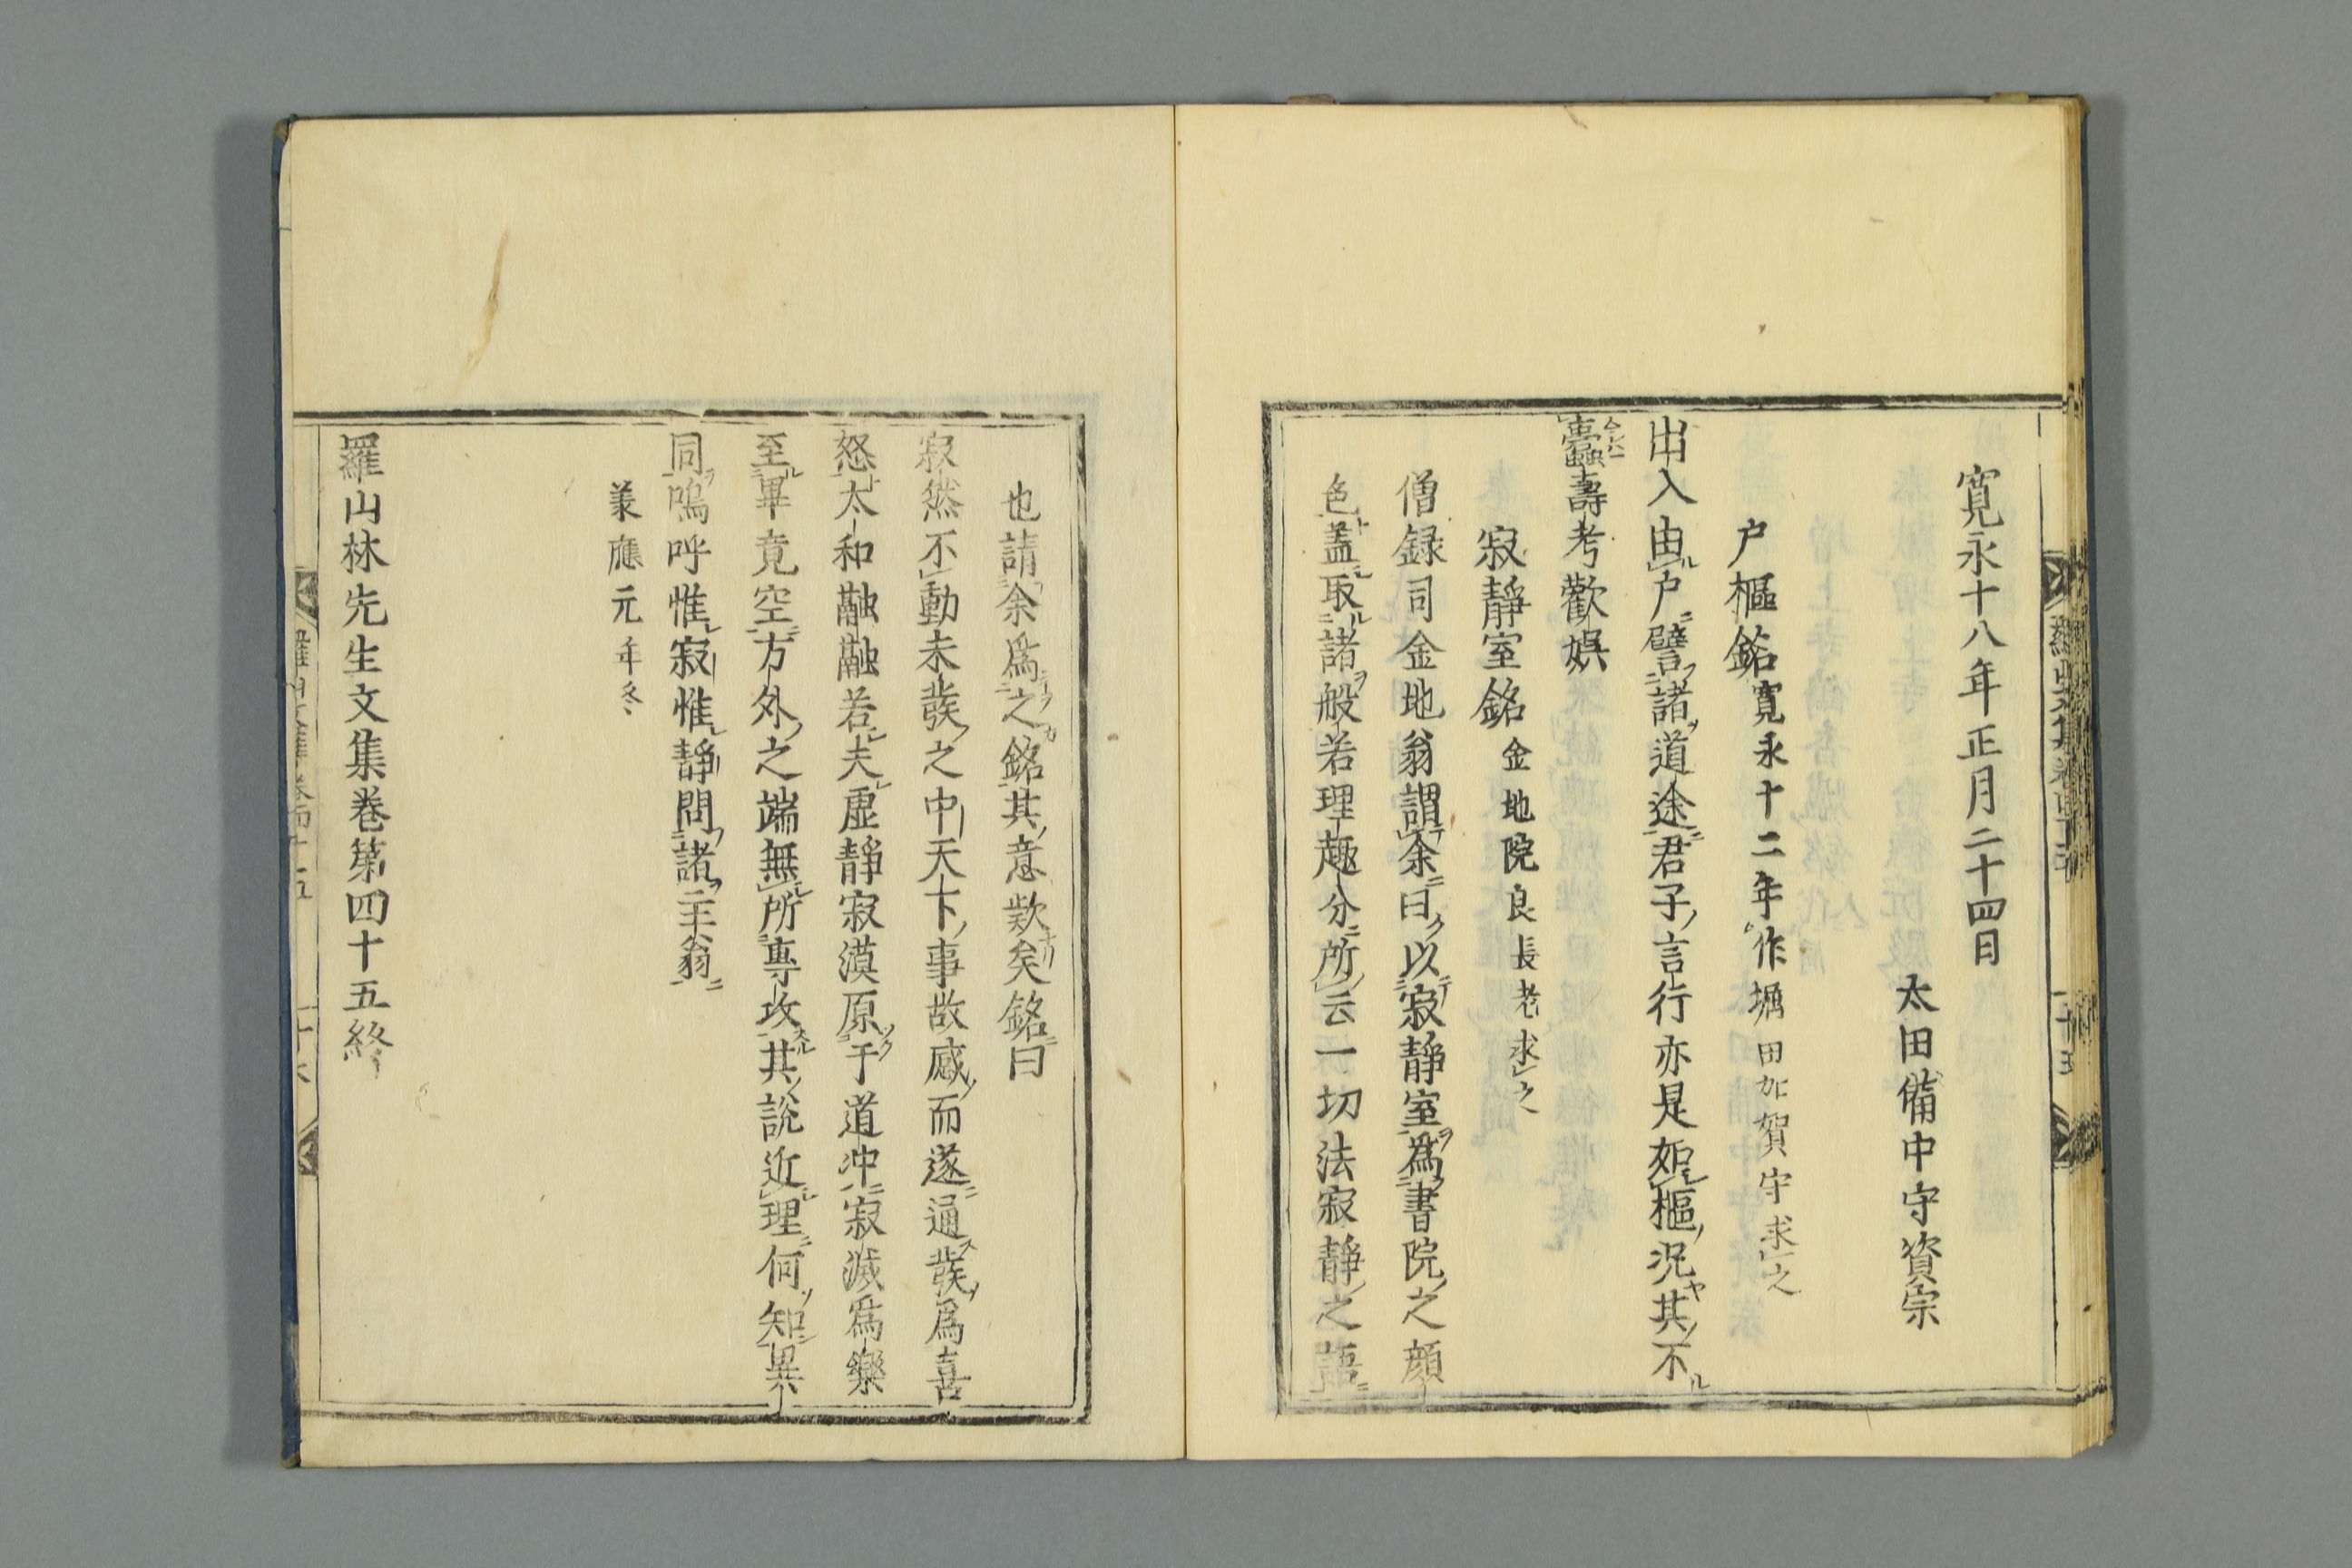 寛永十八年正月二十四日
太田備中守資宗
户樞銘寛永十二年作堀田加賀守求之
出入由户譬諸道途君子言行亦是如樞況其不
蠹壽考歡娯
寂靜室銘金地院良長老求之
僧録司金地翁謂余曰以寂靜室爲書院之顔
色蓋取諸般若理趣分所云一切法寂靜之語
也請余爲之銘其意歟矣銘曰
寂然不動未發之中天下事故感而遂通發爲喜
怒太和融融若夫虚靜寂漠原于道冲寂滅爲樂
至畢竟空方外之端無所專攻其説近理何知異
同嗚呼惟寂惟靜問諸主翁
羕應元年冬
羅山林先生文集巻第四十五終